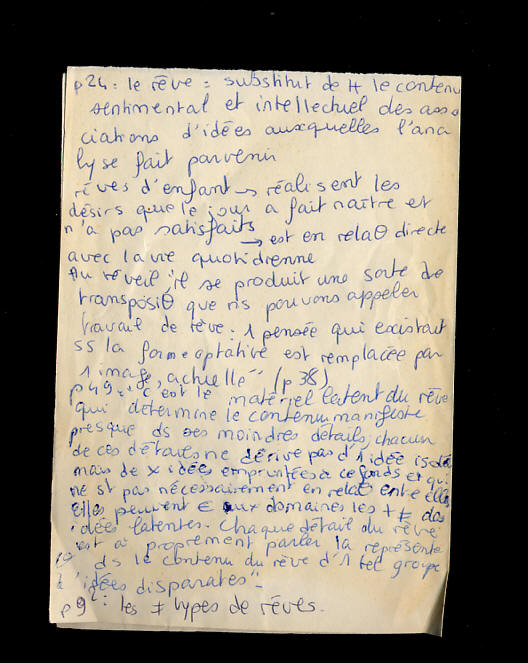 p24 : le rêve = substitut de tt le contenu
sentimental et intellectuel des asso
ciations d'idées auxquelles l'ana
lyse fait parvenir
rêves d'enfant → réalisent les
désirs que le jour a fait naître et
n'a pas satisfaits
→ est en relaθ directe
avec la vie quotidienne
Au réveil "il se produit une sorte de
transpositθ que ns pouvons appeler
travail de rêve : 1 pensée qui existait
ss la forme optative est remplacée par
1 image, actuelle" (p 38)
p 49 : "c'est le matériel latent du rêve
qui détermine le contenu manifeste
presque ds ses moindres détails, chacun
de ces détails ne dérive pas d'1 idée isolée
mais de x idées empruntées à ce fonds et qui
ne st pas nécessairement en relatθ entre elles
elles peuvent ∈ aux domaines les + ≠ des
idées latentes. Chaque détail du rêve
est à proprement parler la représenta
ds le contenu du rêve d'1 tel groupe
d'idées disparates".
p 9 : les ≠ types de rêves.